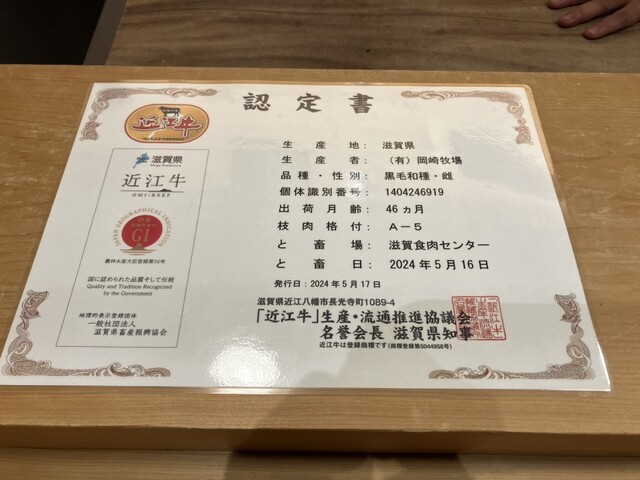 認定書
近江牛
滋賀県
Shiga Prefecture
近江牛
OMI-BEEF
JAPAN GEOGRAPHICAL INDICATION
GI
農林水産大臣登録第56号
国に認められた品質そして伝統
Quality and Tradition Recognized
by the Government
地理的表示登録団体
一般社団法人
滋賀県畜産振興協会
生産地: 滋賀県
生産者: (有)岡崎牧場
品種・性別: 黒毛和種・雌
個体識別番号: 1404246919
出荷月齢: 46ヵ月
枝肉格付: A-5
と畜場: 滋賀食肉センター
と畜日: 2024年5月16日
発行日:2024年5月17日
滋賀県近江八幡市長光寺町1089-4
「近江牛」生産・流通推進協議会
名誉会長 滋賀県知事
近江牛は登録商標です(商標登録第5044958号)